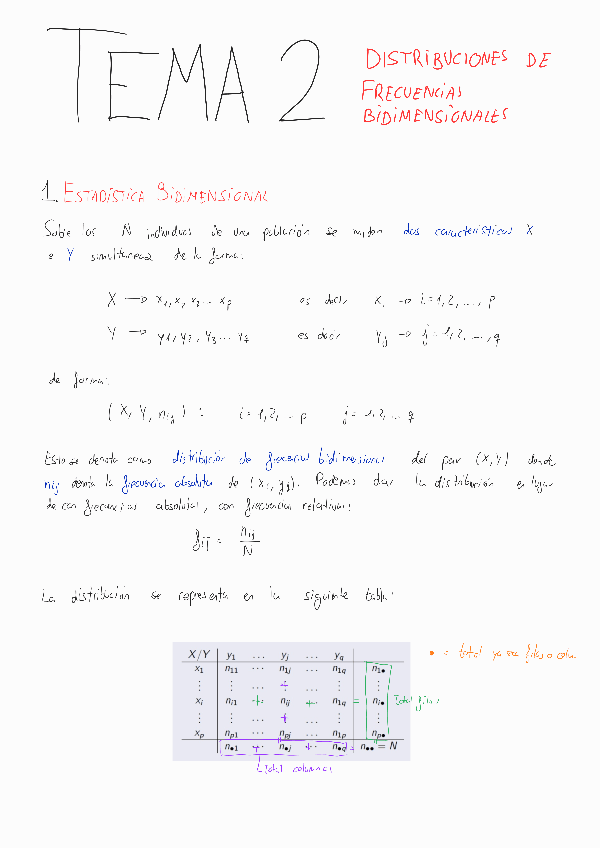 TEMA 2
DISTRIBUCIONES DE
FRECUENCIAS
BIDIMENSIONALES
1. ESTADÍSTICA BIDIMENSIONAL
Sobre los N individuos de una población se miden dos características X
e Y simultáneas de la forma:
X → x1, x2, x3 ... xp es decir xi → i = 1, 2, ..., p
Y → y1, y2, y3 ... yq es decir yj → j = 1, 2, ..., q
de forma:
(X, Y, nij) : i = 1, 2, ... p j = 1, 2, ... q
Esto se denota como distribución de frecuencias bidimensional del par (X, Y) donde
nij denota la frecuencia absoluta de (xi, yj). Podemos dar la distribución en lugar
de con frecuencias absolutas, con frecuencias relativas:
fij = nij / N
La distribución se representa en la siguiente tabla:
X/Y y1 ... yj ... yq
x1 n11 ... n1j ... n1q n1•
⋮ ⋮ + ⋮ ⋮
xi ni1 + ... nij + ... n1q = ni• Total filas
⋮ ⋮ + ⋮ ⋮
xp np1 ... npj ... n1p np•
n•1 + ... n•j + ... n•q n•• = N
Total columnas
• = total ya sea fila o colu.